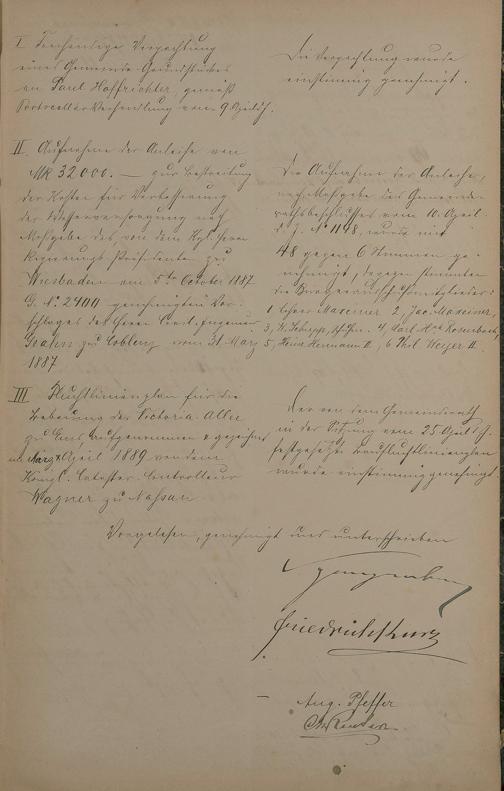 I Freihändige Verpachtung
eines Gemeinde-Grundstückes
an Carl Hoffrichter, gemäß
Protocollar Verhandlung vom 9. April d. J.
Die Verpachtung wurde
einstimmig genehmigt.
II Aufnahme der Anleihe von
Mk 32000.— zur Bestreitung
der Kosten für Verbesserung
der Wasserversorgung nach
Maßgabe des von dem Kgl. Herrn
Regierungs Präsidenten zu
Wiesbaden am 5ten October 1887
G. No. 2400 genehmigten Vor-
schlages des Herrn Civil-Ingenieur
zu Coblenz vom 31 März
1887
Die Aufnahme der Anleihe,
nach Maßgabe des Gemeinde-
rathsbeschlusses vom 10. April
d. J. No 1198, wurde mit
48 gegen 6 Stimmen ge-
nehmigt, dagegen stimmten
die Bürgerausschußmitglieder:
1 Maxeiner 2, Jac. Maxeiner,
3, W. 4 Karl Hch
5, Heinr. Hermann II, 6 Phil. II.
III Fluchtlinienplan für die
Bebauung der Victoria-Allee
zu Ems, aufgenommen & gezeichnet
im März/April 1889 von dem
Königl. Cataster-Controlleur
Wagner zu Nassau
Der von dem Gemeinderath
in der Sitzung vom 25 April d. J.
festgesetzte Baufluchtlinienplan
wurde einstimmig genehmigt
Vorgelesen, genehmigt und unterschrieben
Friedrich Kurz
Aug. Pfeffer